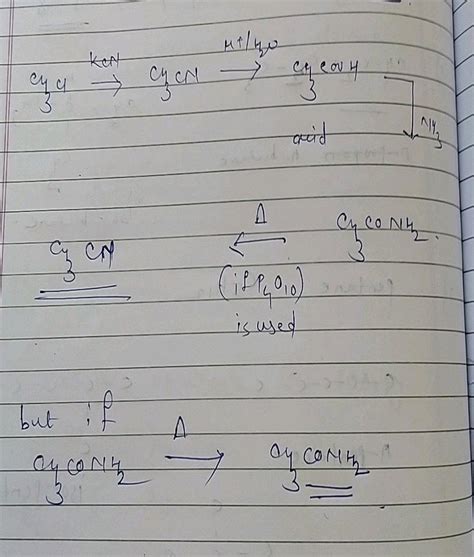 CH3Cl KCN → CH3CN H+/H2O → CH3COOH
acid NH3
CH3CN ← Δ CH3CONH2
(if P4O10)
is used
but if
CH3CONH2 Δ → CH3CONH2